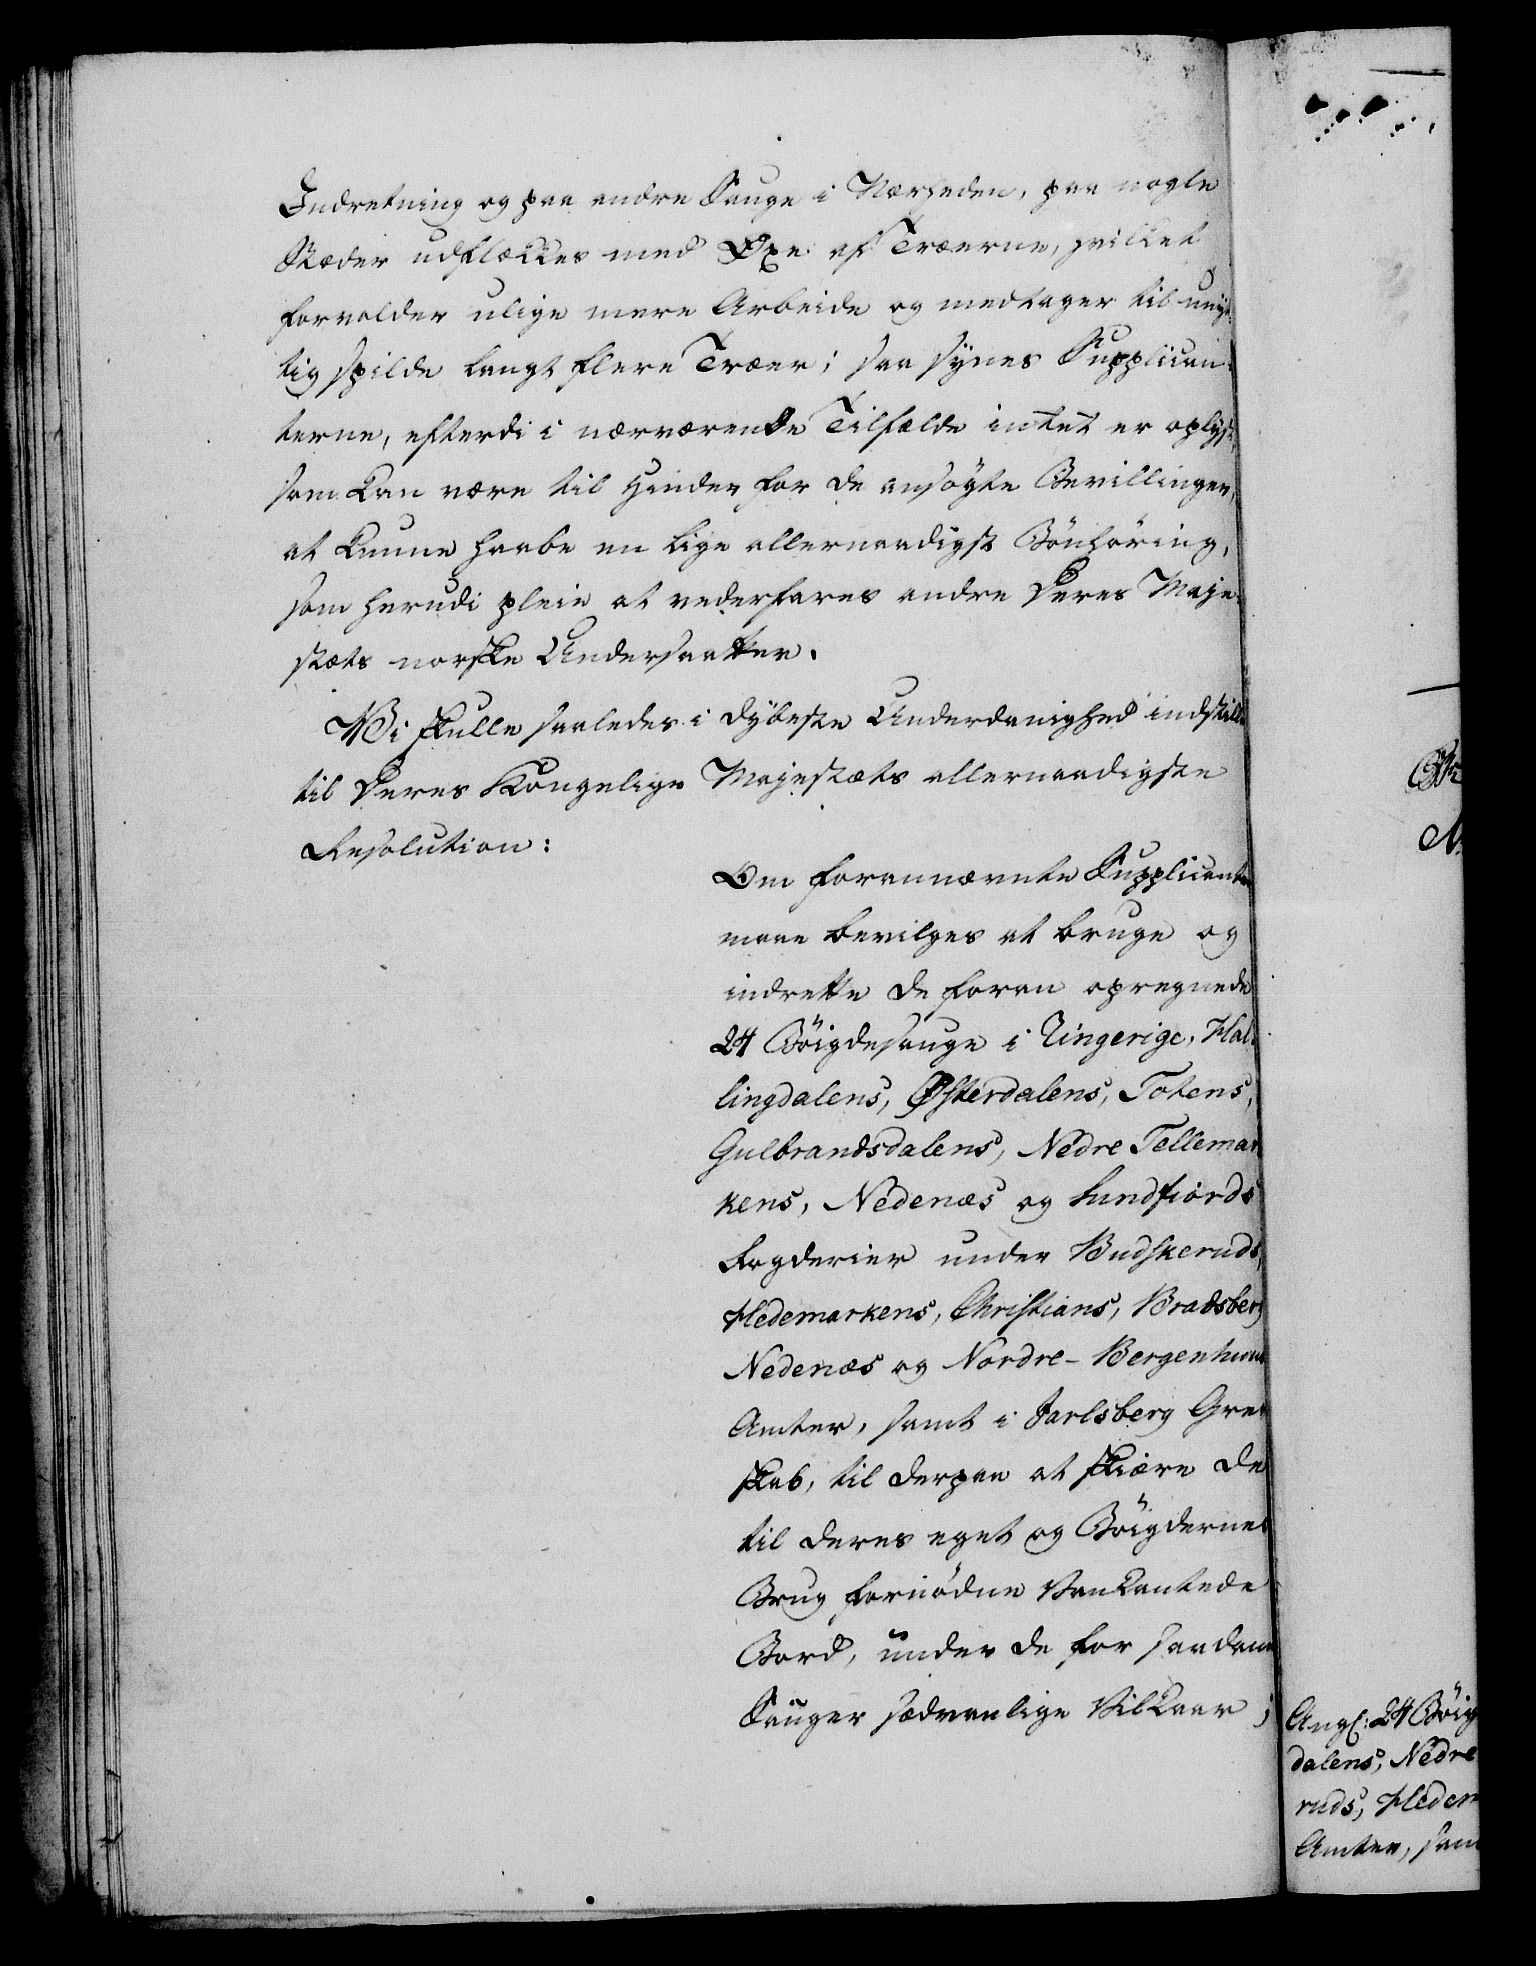 Indretning og paa andre Sauge i Nærheden, paa nogle
Stæder udflækkes med Øxe af Træerne, hvilket
forvolder ulige mere Arbeide og medtager til unyt-
tig spilde langt flere Træer; saa synes Supplican-
terne, efterdi i nærværende Tilfælde intet er oplyst,
som kan være til Hinder for de ansögte Bevillinger,
at kunne haabe en lige allernaadigst Bönhöring,
som herudi pleie at vederfares andre Deres Maje-
stæts norske Undersaatter.
Vi skulle saaledes i dybeste Underdanighed indstille
til Deres Kongelige Majestæts allernaadigste
Resolution:
Om forannævnte Supplicanter
maae bevilges at bruge og
indrette de foran opregnede
24 Böigdesauge i Ringerige, Hal-
lingdalens, Østerdalens, Totens,
Gulbrandsdalens, Nedre Tellemar-
kens, Nedenæs og Sundfiords
Fogderier under Budskeruds,
Hedemarkens, Christians, Bradsberg
Nedenæs og Nordre-Bergenhuus
Amter, samt i Jarlsberg Grev-
skab, til derpaa at skiære de
til deres eget og Böigdernes
Brug fornödne Vankantede
Bord, under de for saadane
Sauger sædvanlige Vilkaar;
Angl: 24 Böig
dalens, Nedre
ruds, Hedem
Amter, sam